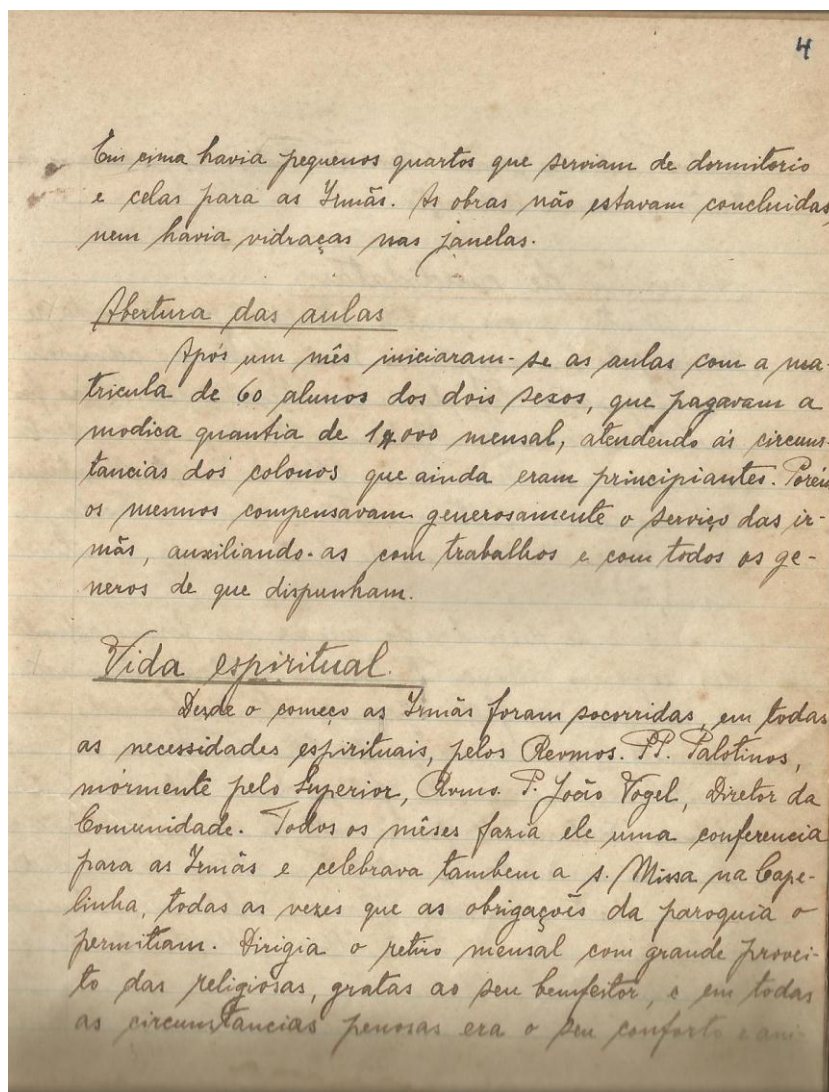 4
Em cima havia pequenos quartos que serviam de dormitorio
e celas para as Irmãs. As obras não estavam concluidas,
nem havia vidraças nas janelas.
Abertura das aulas
Após um mês iniciaram-se as aulas com a ma-
tricula de 60 alunos dos dois sexos, que pagavam a
modica quantia de 1$000 mensal, atendendo ás circuns-
tancias dos colonos que ainda eram principiantes. Porém
os mesmos compensavam generosamente o serviço das ir-
mãs, auxiliando-as com trabalhos e com todos os ge-
neros de que dispunham.
Vida espiritual.
Desde o começo as Irmãs foram socorridas, em todas
as necessidades espirituais, pelos Revmos. PP. Palotinos,
mórmente pelo Superior, Rvmo. P. João Vogel, Diretor da
Comunidade. Todos os mêses fazia ele uma conferencia
para as Irmãs e celebrava tambem a s. Missa na Cape-
linha, todas as vezes que as obrigações da paroquia o
permitiam. Dirigia o retiro mensal com grande provei-
to das religiosas, gratas ao seu bemfeitor, e em todas
as circunstancias penosas era o seu conforto e ani-